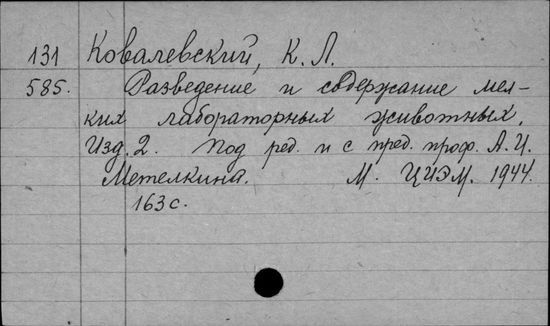 131 Ковалевский, К. Л.
585. Разведение и содержание мел-
ких лабораторных животных.
Изд. 2. Под ред. и с пред. проф. А. И.
Метелкина. М. ЦИЭМ. 1944.
163 с.